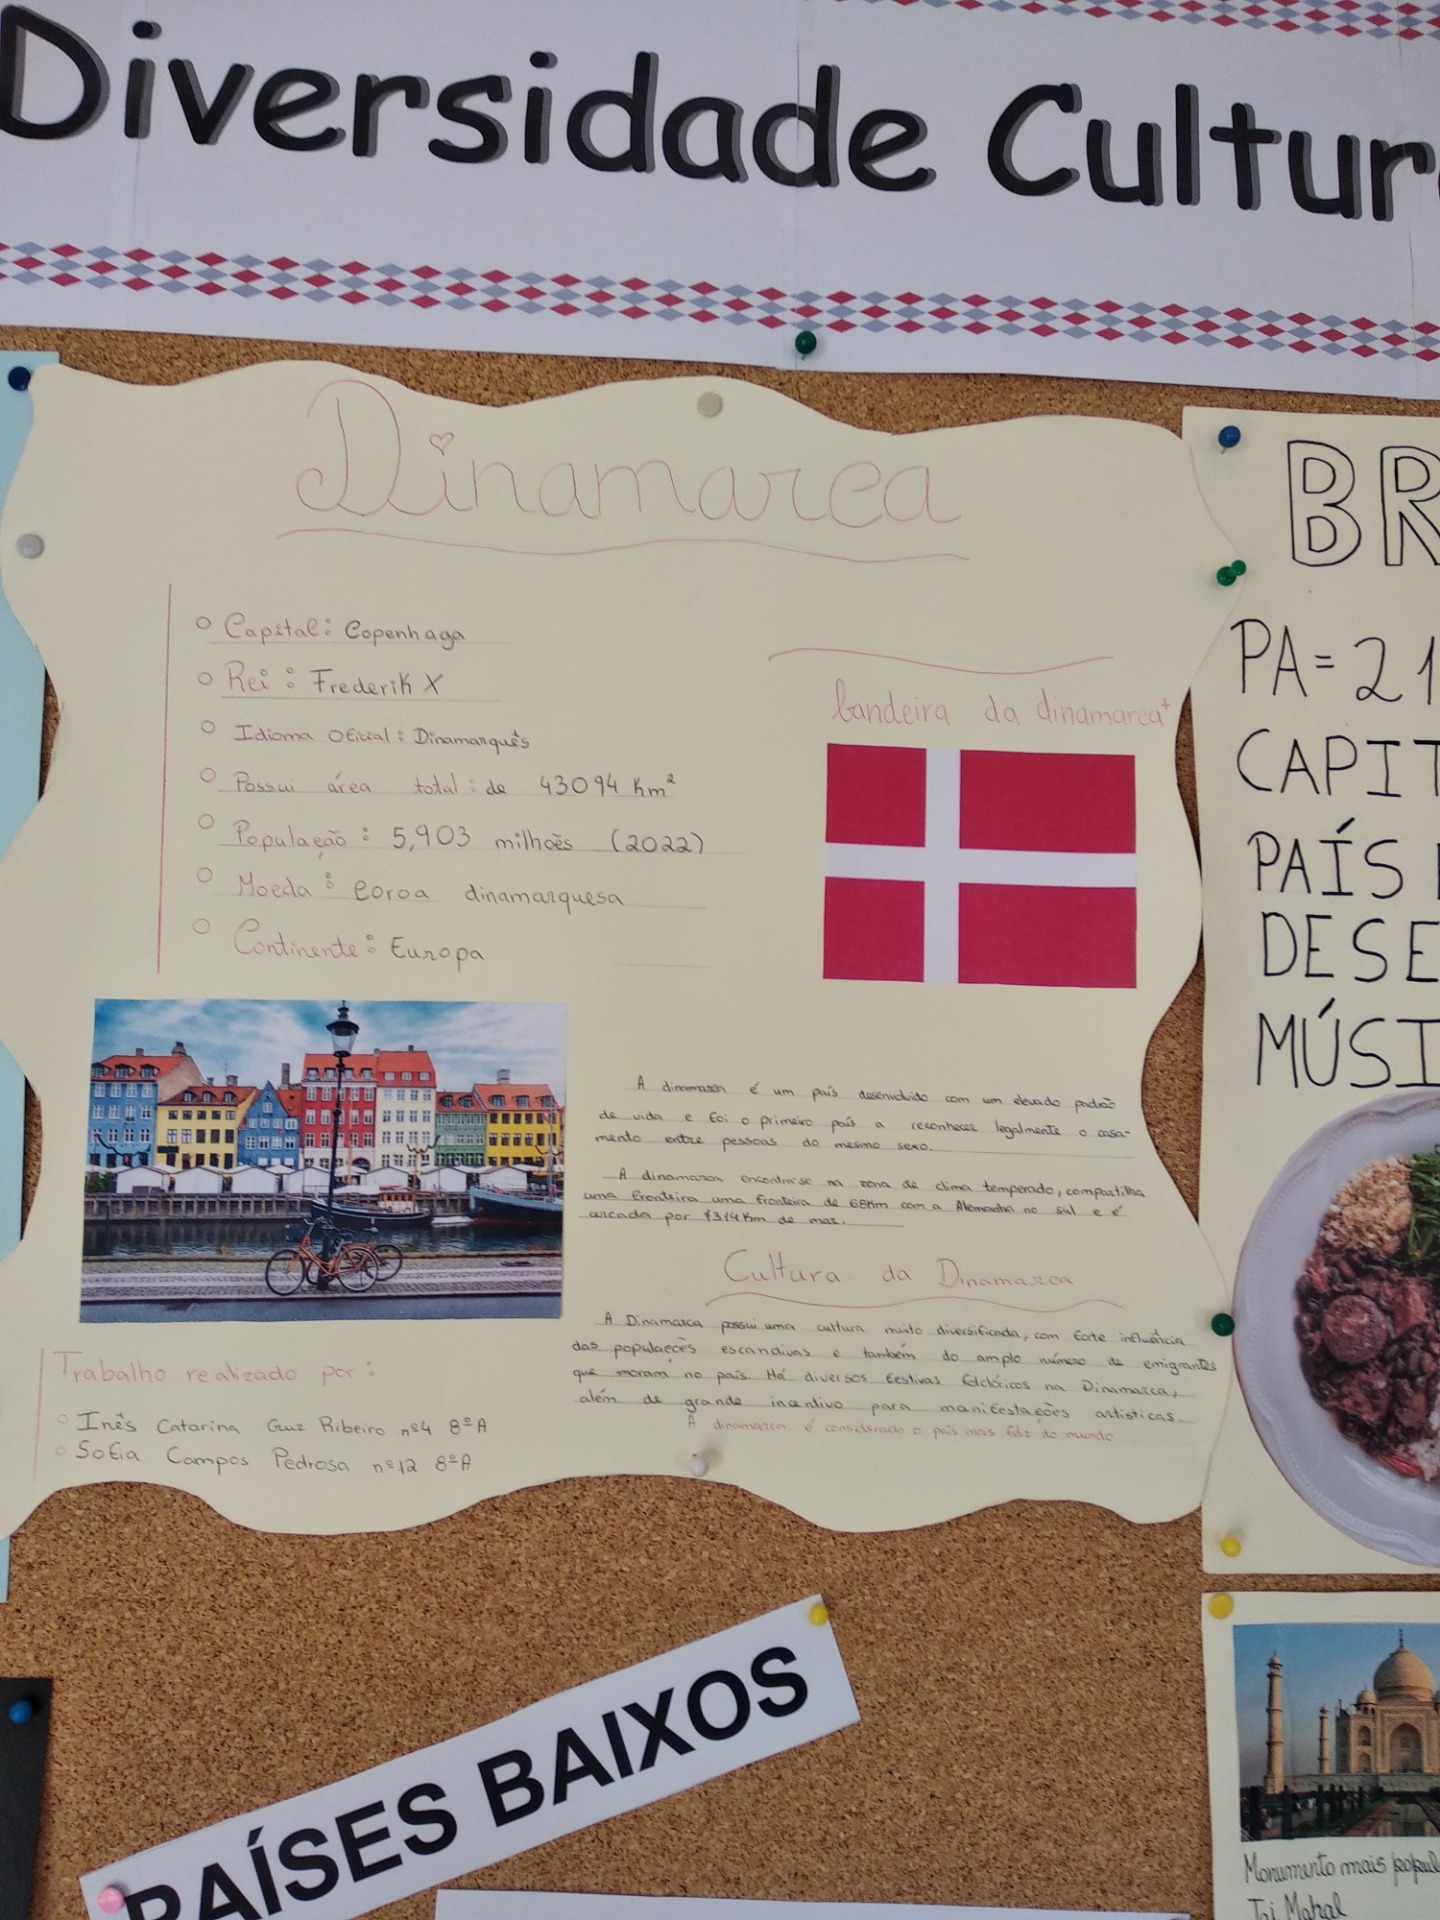 Diversidade Cultur
Dinamarca
Capital: Copenhaga
Rei: Frederik X
Idioma Oficial: Dinamarquês
Possui área total: de 43094 Km²
População: 5,903 milhões (2022)
Moeda: coroa dinamarquesa
Continente: Europa
bandeira da dinamarca
A dinamarca é um país desenvolvido com um elevado padrão
de vida e foi o primeiro país a reconhecer legalmente o casa-
mento entre pessoas do mesmo sexo.
A dinamarca encontra-se na zona de clima temperado, compartilha
uma fronteira uma fronteira de 68Km com a Alemanha no sul e é
arcada por 7314Km de mar.
Cultura da Dinamarca
A Dinamarca possui uma cultura muito diversificada, com forte influência
das populações escandivas e também do amplo número de emigrantes
que moram no país. Há diversos festivas folclóricos na Dinamarca,
além de grande incentivo para manifestações artisticas.
A dinamarca é considerado o país mais feliz do mundo
Trabalho realizado por:
Inês Catarina Ribeiro nº4 8ºA
Sofia Campos Pedrosa nº12 8ºA
BR
PA=21
CAPIT
PAÍS
DESE
MÚSI
PAÍSES BAIXOS
Monumento mais popul
Taj Mahal